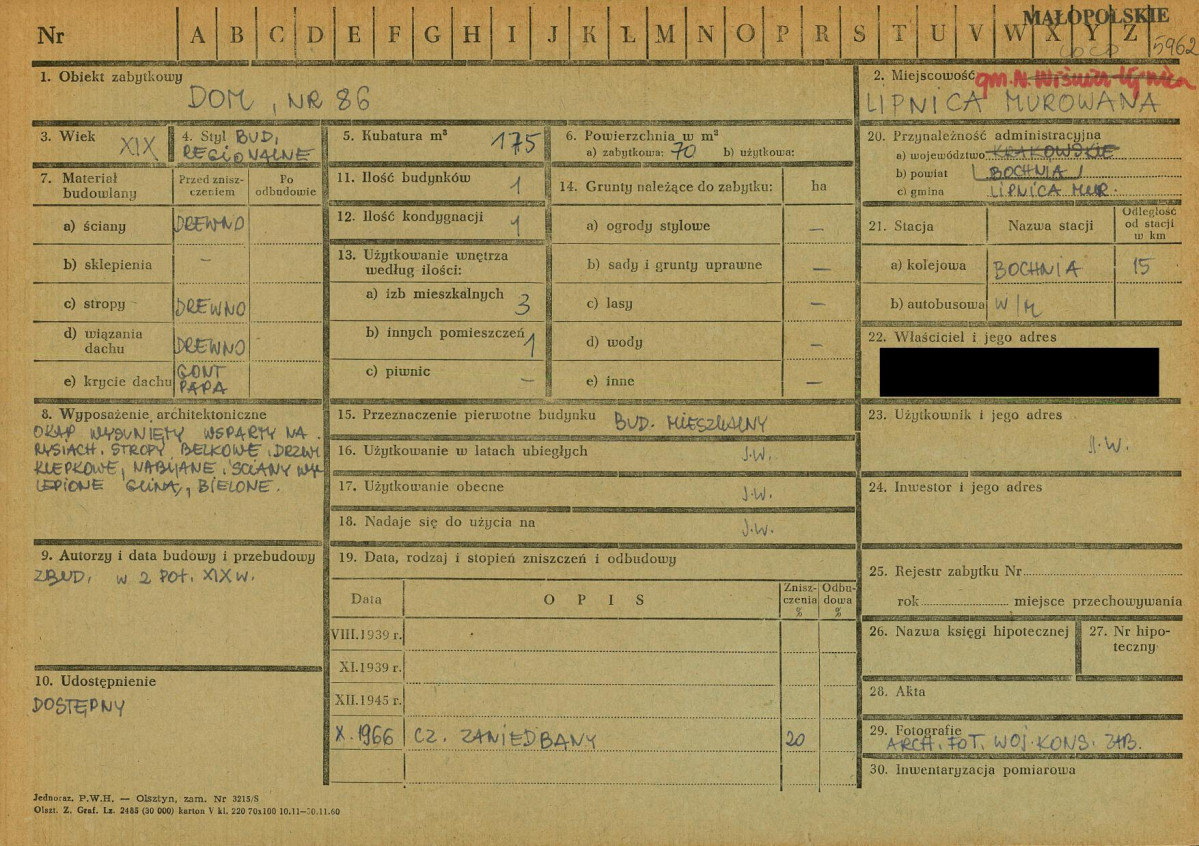 Nr A B C D E F G H I J K L M N O P R S T U V W X Y Z
MAŁOPOLSKIE
5962
1. Obiekt zabytkowy
DOM, NR 86
2. Miejscowość gm. N. Wiśnicz
LIPNICA MUROWANA
3. Wiek XIX
4. Styl BUD,
REGIONALNE
5. Kubatura m³ 175
6. Powierzchnia w m²
a) zabytkowa: 70 b) użytkowa:
7. Materiał budowlany
Przed zniszczeniem
Po odbudowie
a) ściany DREWNO
b) sklepienia –
c) stropy DREWNO
d) wiązania dachu DREWNO
e) krycie dachu GONT
PAPA
8. Wyposażenie architektoniczne
OKAP WYSUNIĘTY WSPARTY NA
RYSIACH. STROPY BELKOWE, DRZWI
KLEPKOWE, NABIJANE, ŚCIANY WY
LEPIONE GLINĄ, BIELONE.
9. Autorzy i data budowy i przebudowy
ZBUD. w 2 POŁ. XIX w.
10. Udostępnienie
DOSTĘPNY
11. Ilość budynków 1
12. Ilość kondygnacji 1
13. Użytkowanie wnętrza
według ilości:
a) izb mieszkalnych 3
b) innych pomieszczeń 1
c) piwnic –
14. Grunty należące do zabytku: ha
a) ogrody stylowe –
b) sady i grunty uprawne –
c) lasy –
d) wody –
e) inne –
15. Przeznaczenie pierwotne budynku BUD. MIESZKALNY
16. Użytkowanie w latach ubiegłych J.W.
17. Użytkowanie obecne J.W.
18. Nadaje się do użycia na J.W.
19. Data, rodzaj i stopień zniszczeń i odbudowy
Data O P I S Zniszczenia % Odbudowa %
VIII.1939 r.
XI.1939 r.
XII.1945 r.
X.1966 CZ. ZANIEDBANY 20
20. Przynależność administracyjna
a) województwo KRAKOWSKIE
b) powiat BOCHNIA
c) gmina LIPNICA MUR.
21. Stacja Nazwa stacji Odległość od stacji w km
a) kolejowa BOCHNIA 15
b) autobusowa W/M
22. Właściciel i jego adres
23. Użytkownik i jego adres
J.W.
24. Inwestor i jego adres
25. Rejestr zabytku Nr
rok miejsce przechowywania
26. Nazwa księgi hipotecznej
27. Nr hipoteczny
28. Akta
29. Fotografie
ARCH. FOT. WOJ. KONS. ZAB.
30. Inwentaryzacja pomiarowa
Jednoraz. P.W.H. — Olsztyn, zam. Nr 3215/S
Olszt. Z. Graf. Lz. 2485 (30 000) karton V kl. 220 70x100 10.11—30.11.60